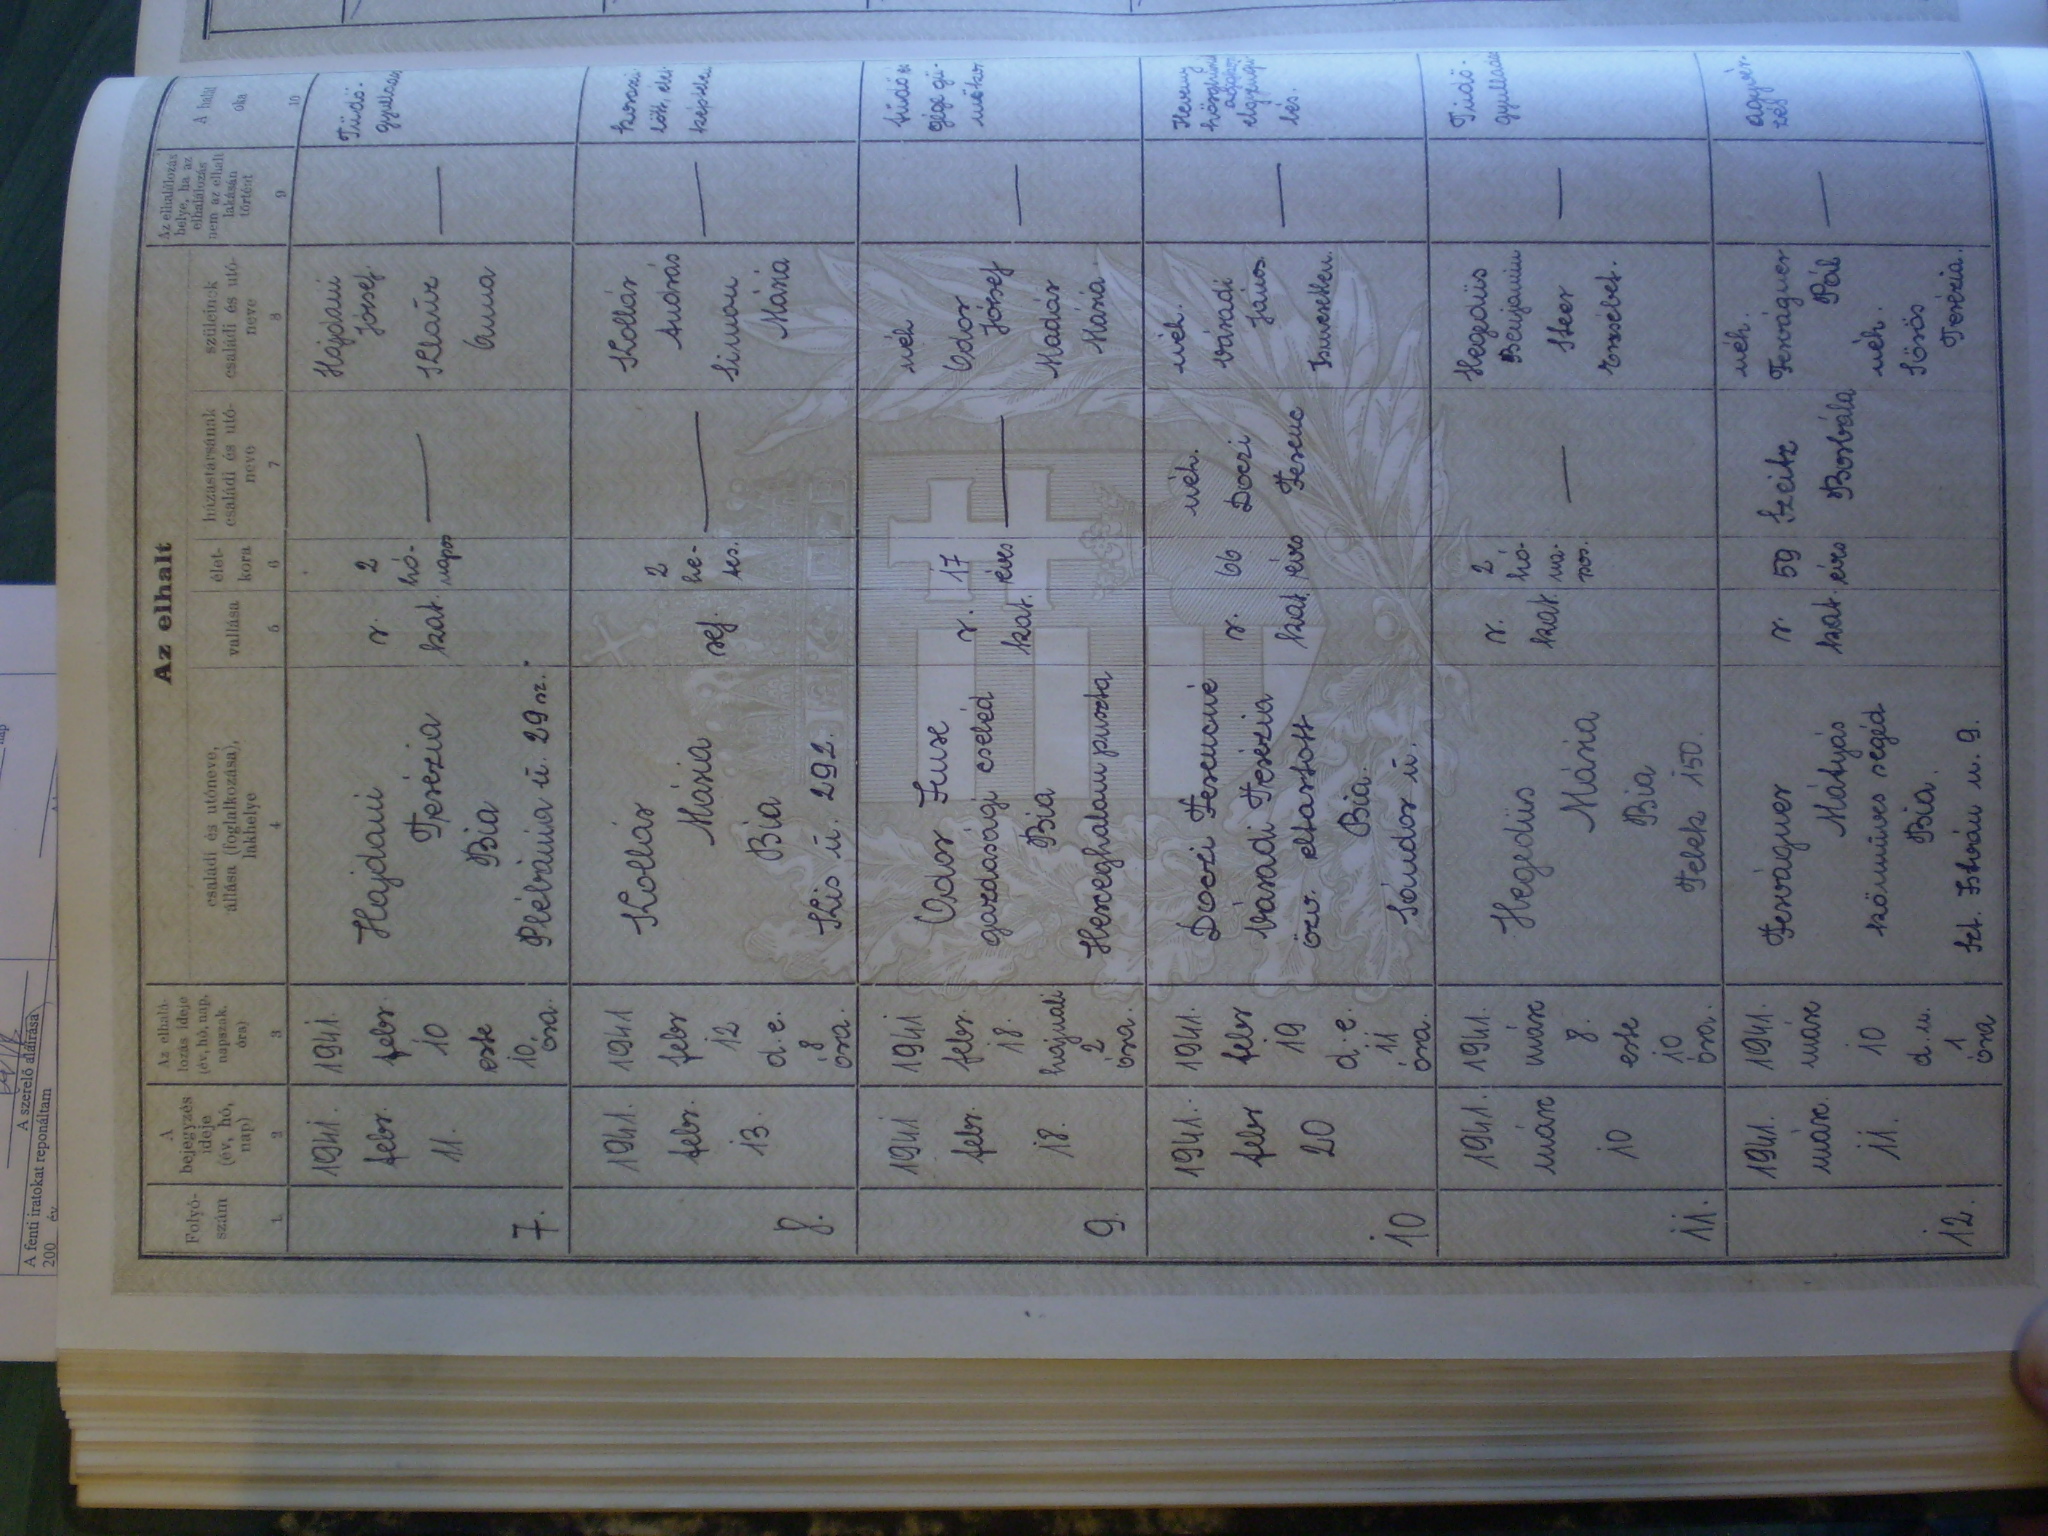 A szerelő aláírása
A fenti iratokat reponáltam
200 év
nap
Az elhalt
Folyó-
szám
A
bejegyzés
ideje
(év, hó,
nap)
Az elhalá-
lozás ideje
(év, hó, nap,
napszak,
óra)
családi és utóneve,
állása (foglalkozása),
lakhelye
vallása
élet-
kora
házastársának
családi és utó-
neve
szüleinek
családi és utó-
neve
Az elhalálozás
helye, ha az
elhalálozás
nem az elhalt
lakásán
történt
A halál
oka
1.
2
3
4
5
6
7
8
9
10
7.
1941.
febr.
11.
1941.
febr.
10
este
10.
óra.
Hajdani
Terézia
Bia
Plébánia ú. 29 sz.
r.
kat.
2
hó-
napos
—
Hajdani
József.
Klauz
Anna
—
Tüdő-
gyulladás
8.
1941.
febr.
13.
1941
febr
12
d. e.
8
óra.
Kollár
Mária
Bia
Kis ú. 292.
ref.
2
he-
tes.
—
Kollár
András
Simon
Mária
—
koraszü
lött,
9.
1941
febr.
18.
1941
febr.
18.
hajnali
2
óra.
Odor Imre
gazdasági cseléd
Bia
Herceghalom puszta
r.
kat.
17
éves
—
néh.
Odor
József
Madár
Mária
—
tüdő és
gége gü-
mőkór
10
1941.
febr
20
1941.
febr
19
d. e.
11
óra.
Dóczi Ferencné
Váradi Terézia
özv. eltartott
Bia.
Sándor ú.
r.
kat.
66
éves
néh.
Dóczi
Ferenc
néh.
Váradi
János
Ismeretlen.
—
Heveny
lés.
11.
1941.
márc
10
1941.
márc
8.
este
10
óra.
Hegedüs
Mária
Bia
Telek 150.
r.
kat.
2
hó-
na-
pos.
—
Hegedüs
Benjámin
Steer
Erzsébet.
—
Tüdő-
gyulladás
12.
1941.
márc.
11.
1941.
márc
10
d. u.
1
óra
Fervágner
Mátyás
kőmüves segéd
Bia.
Szt. István u. 9.
r.
kat.
59
éves
Szeitz
Borbála
néh.
Fervágner
Pál
néh.
Sörös
Terézia.
—
agyvér-
zés